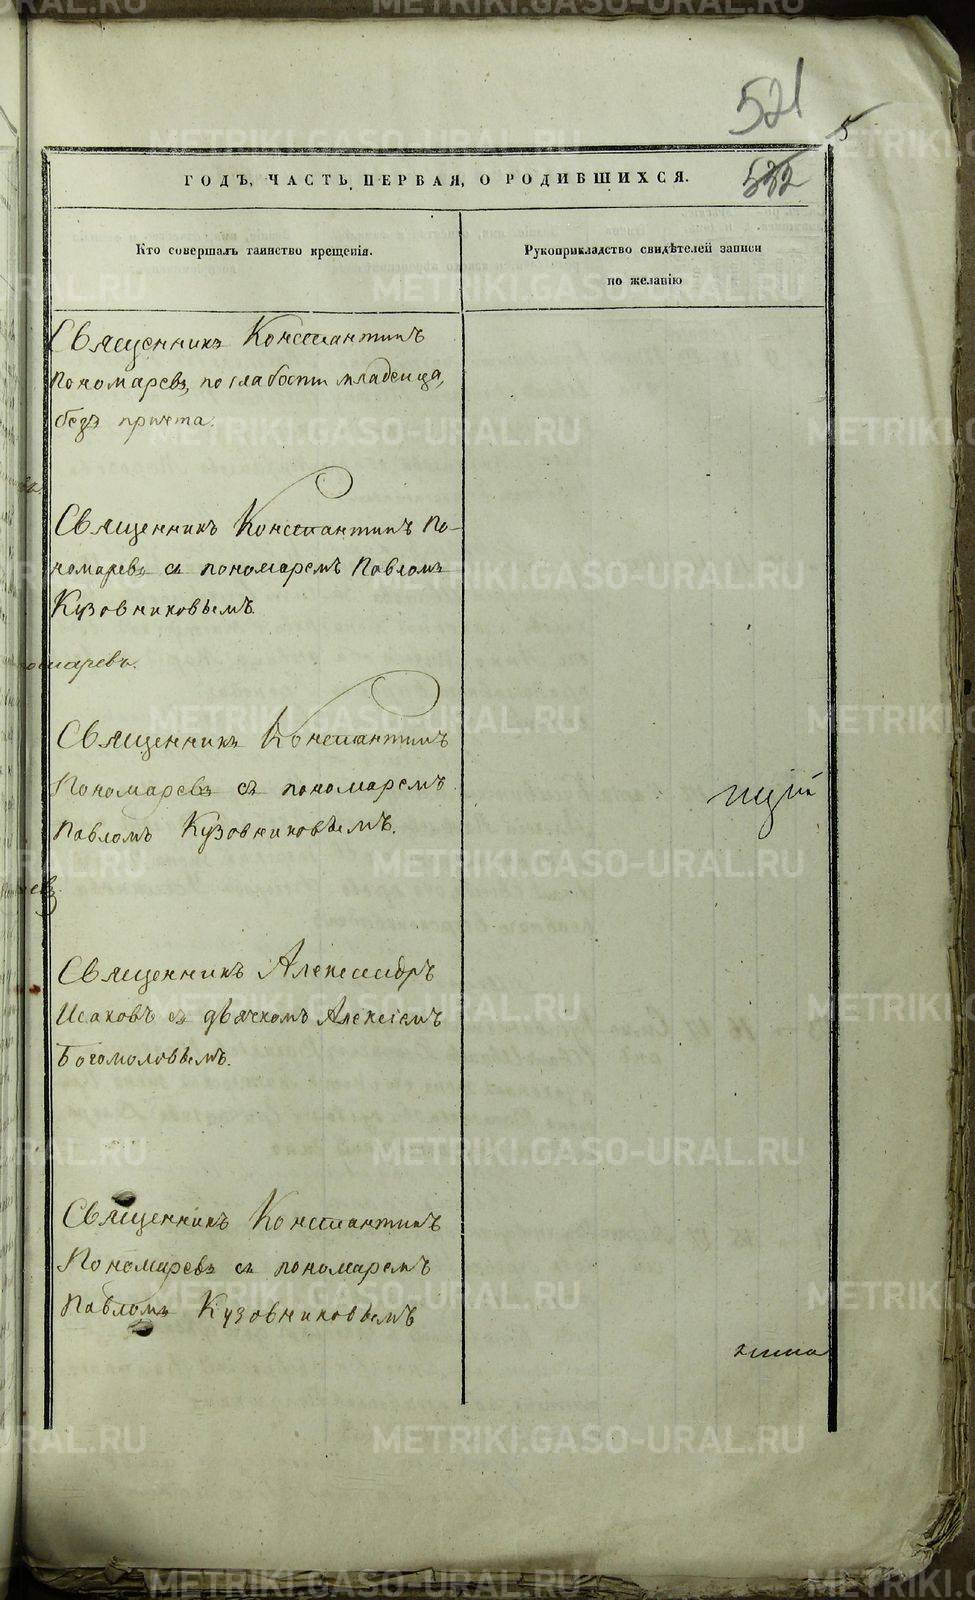 521
5
ГОДЪ, ЧАСТЬ ПЕРВАЯ, О РОДИВШИХСЯ.
532
Кто совершалъ таинство крещенія.
Рукоприкладство свидѣтелей записи
по желанію
Священникъ Константинъ
Пономаревъ, по слабости младенца,
безъ причта.
Священникъ Константинъ По-
номаревъ съ пономаремъ Павломъ
Кузовниковымъ
номаревъ.
Священникъ Константинъ
Пономаревъ съ пономаремъ
Павломъ Кузовниковымъ.
Священникъ Александръ
Исаковъ съ дьячкомъ Алексіемъ
Богомоловымъ.
Священникъ Константинъ
Пономаревъ съ пономаремъ
Павломъ Кузовниковымъ
METRIKI.GASO-URAL.RU